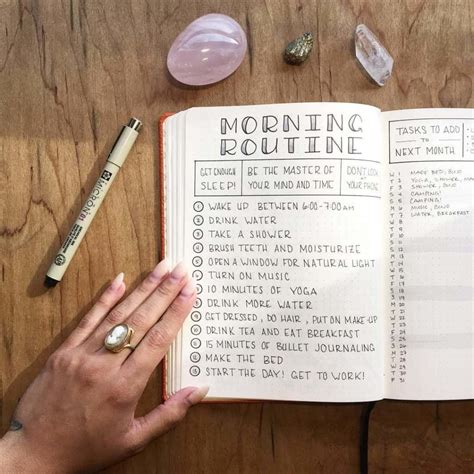 MORNING
ROUTINE
GET ENOUGH
SLEEP!
BE THE MASTER OF
YOUR MIND AND TIME
DON'T LOOK
YOUR PHONE
1 WAKE UP BETWEEN 6:00-7:00AM
2 DRINK WATER
3 TAKE A SHOWER
4 BRUSH TEETH AND MOISTURIZE
5 OPEN A WINDOW FOR NATURAL LIGHT
6 TURN ON MUSIC
7 10 MINUTES OF YOGA
8 DRINK MORE WATER
9 GET DRESSED, DO HAIR, PUT ON MAKE-UP
10 DRINK TEA AND EAT BREAKFAST
11 15 MINUTES OF BULLET JOURNALING
12 MAKE THE BED
13 START THE DAY! GET TO WORK!
TASKS TO ADD
TO
NEXT MONTH
W 1 MADE BED, BUJO
T 2 YOGA, SHOWER,
F 3 SHOWER, BUJO
S 4 CAMPING!
S 5 CAMPING!
M 6 MUSIC, BUJO
T 7 WATER, BREAKFAST
MICRON